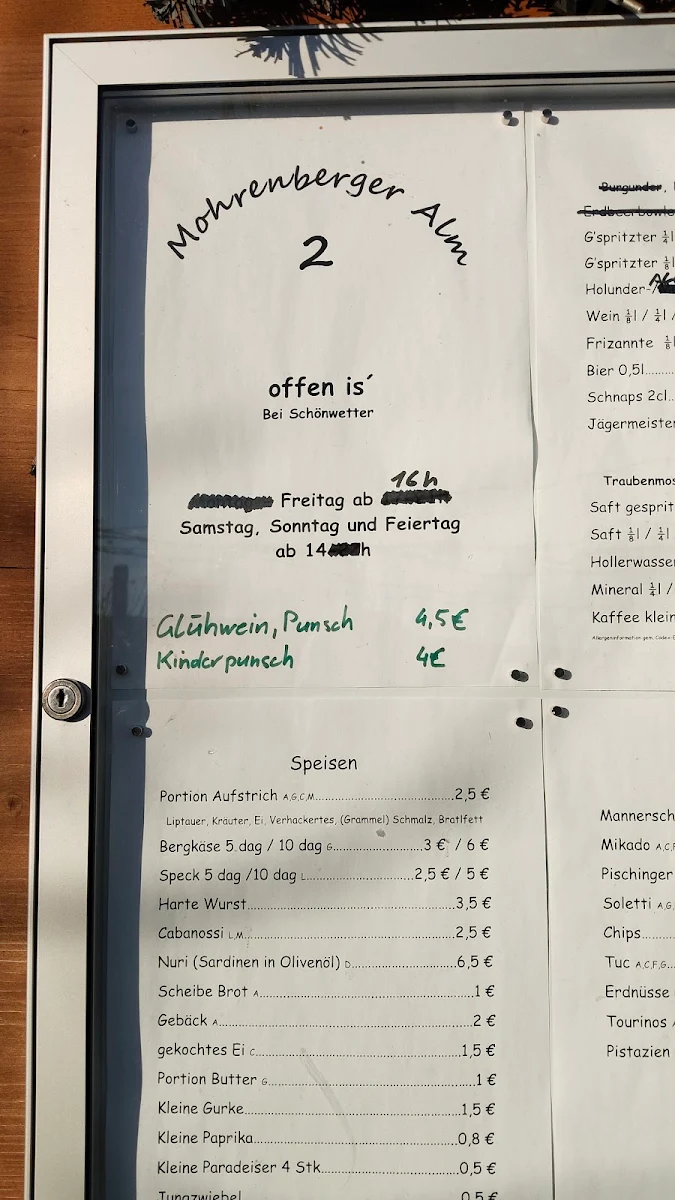 Mohrenberger Alm
2
offen is´
Bei Schönwetter
16h
Freitag ab
Samstag, Sonntag und Feiertag
ab 14 h
Glühwein, Punsch 4,5€
Kinderpunsch 4€
Speisen
Portion Aufstrich A,G,C,M 2,5 €
Liptauer, Kräuter, Ei, Verhackertes, (Grammel) Schmalz, Bratlfett
Bergkäse 5 dag / 10 dag G 3 € / 6 €
Speck 5 dag /10 dag L 2,5 € / 5 €
Harte Wurst 3,5 €
Cabanossi L,M 2,5 €
Nuri (Sardinen in Olivenöl) D 6,5 €
Scheibe Brot A 1 €
Gebäck A 2 €
gekochtes Ei C 1,5 €
Portion Butter G 1 €
Kleine Gurke 1,5 €
Kleine Paprika 0,8 €
Kleine Paradeiser 4 Stk 0,5 €
Jungzwiebel 0,5 €
Burgunder,
Erdbeerbowle
G'spritzter ¼l
G'spritzter ⅛l
Holunder-/
Wein ⅛l / ¼l /
Frizannte ⅛l
Bier 0,5l
Schnaps 2cl
Jägermeister
Traubenmos
Saft gesprit
Saft ⅛l / ¼l
Hollerwasser
Mineral ¼l /
Kaffee klein
Allergeninformation gem. Codex-E
Mannersch
Mikado A,C,F
Pischinger
Soletti A,G
Chips
Tuc A,C,F,G
Erdnüsse
Tourinos A
Pistazien